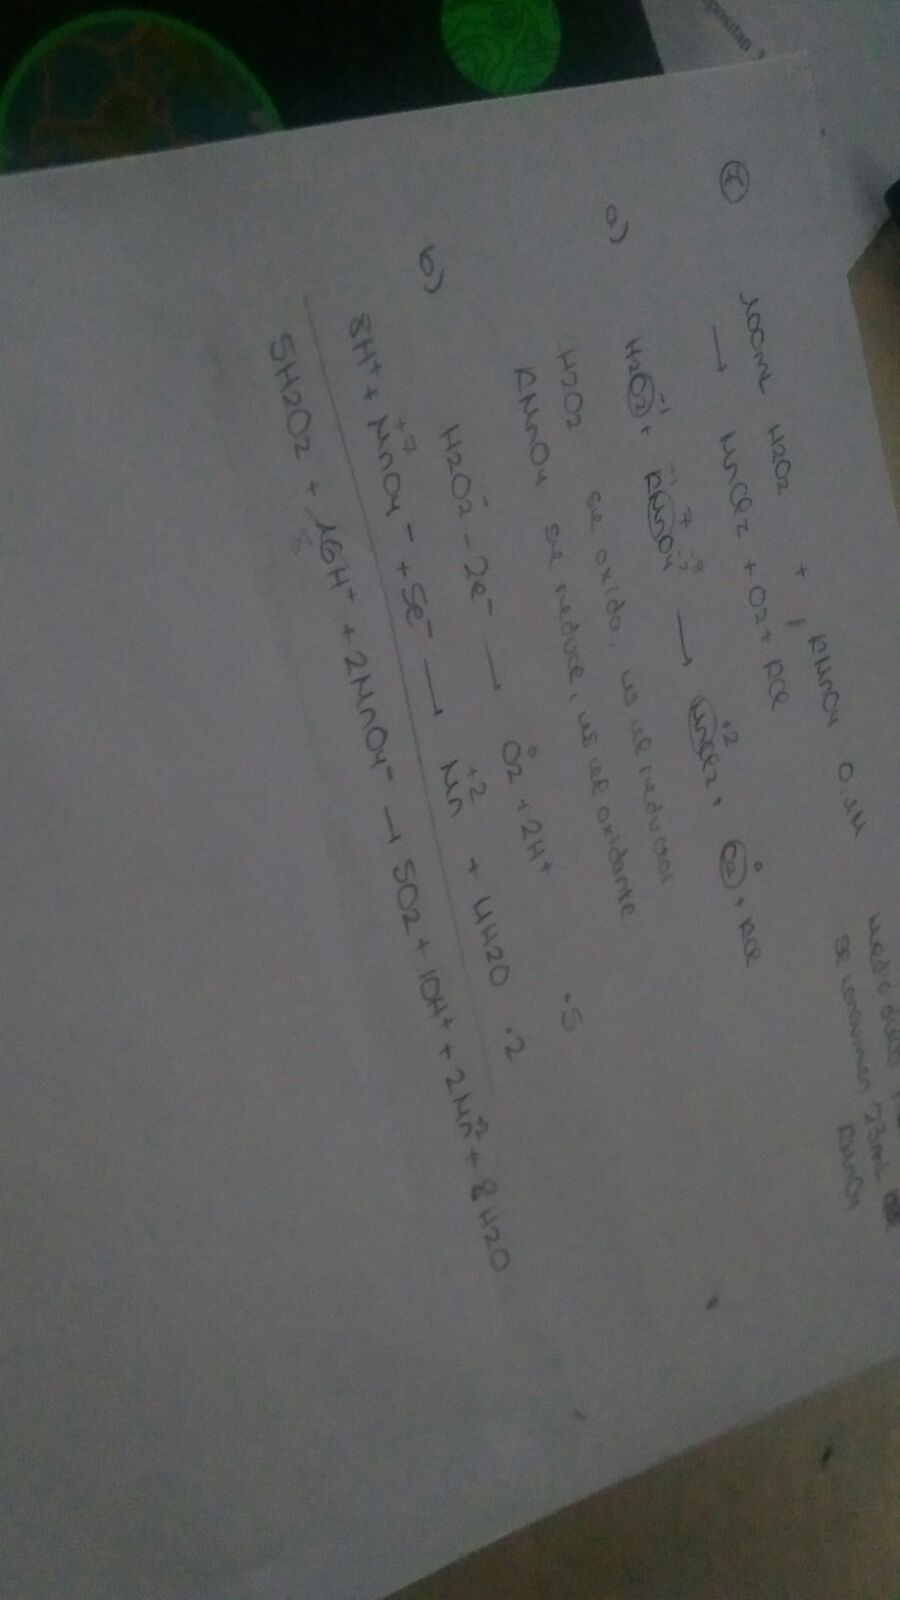 1 100mL H2O2 + KMnO4 0,1M
se consumen 23mL
KMnO4
→ MnCl2 + O2 + KCl
a) H2O2 -1 + KMnO4 +1 7 -2 -8 → MnCl2 +2 + O2 0 + KCl
H2O2 se oxida, es el reductor
KMnO4 se reduce, es el oxidante
b) H2O2⁻ - 2e⁻ → O2 0 + 2H⁺ ·5
8H⁺ + MnO4⁻ +7 + 5e⁻ → Mn +2 + 4H2O ·2
5H2O2 + 16H⁺ + 2MnO4⁻ → 5O2 + 10H⁺ + 2Mn+2 + 8H2O